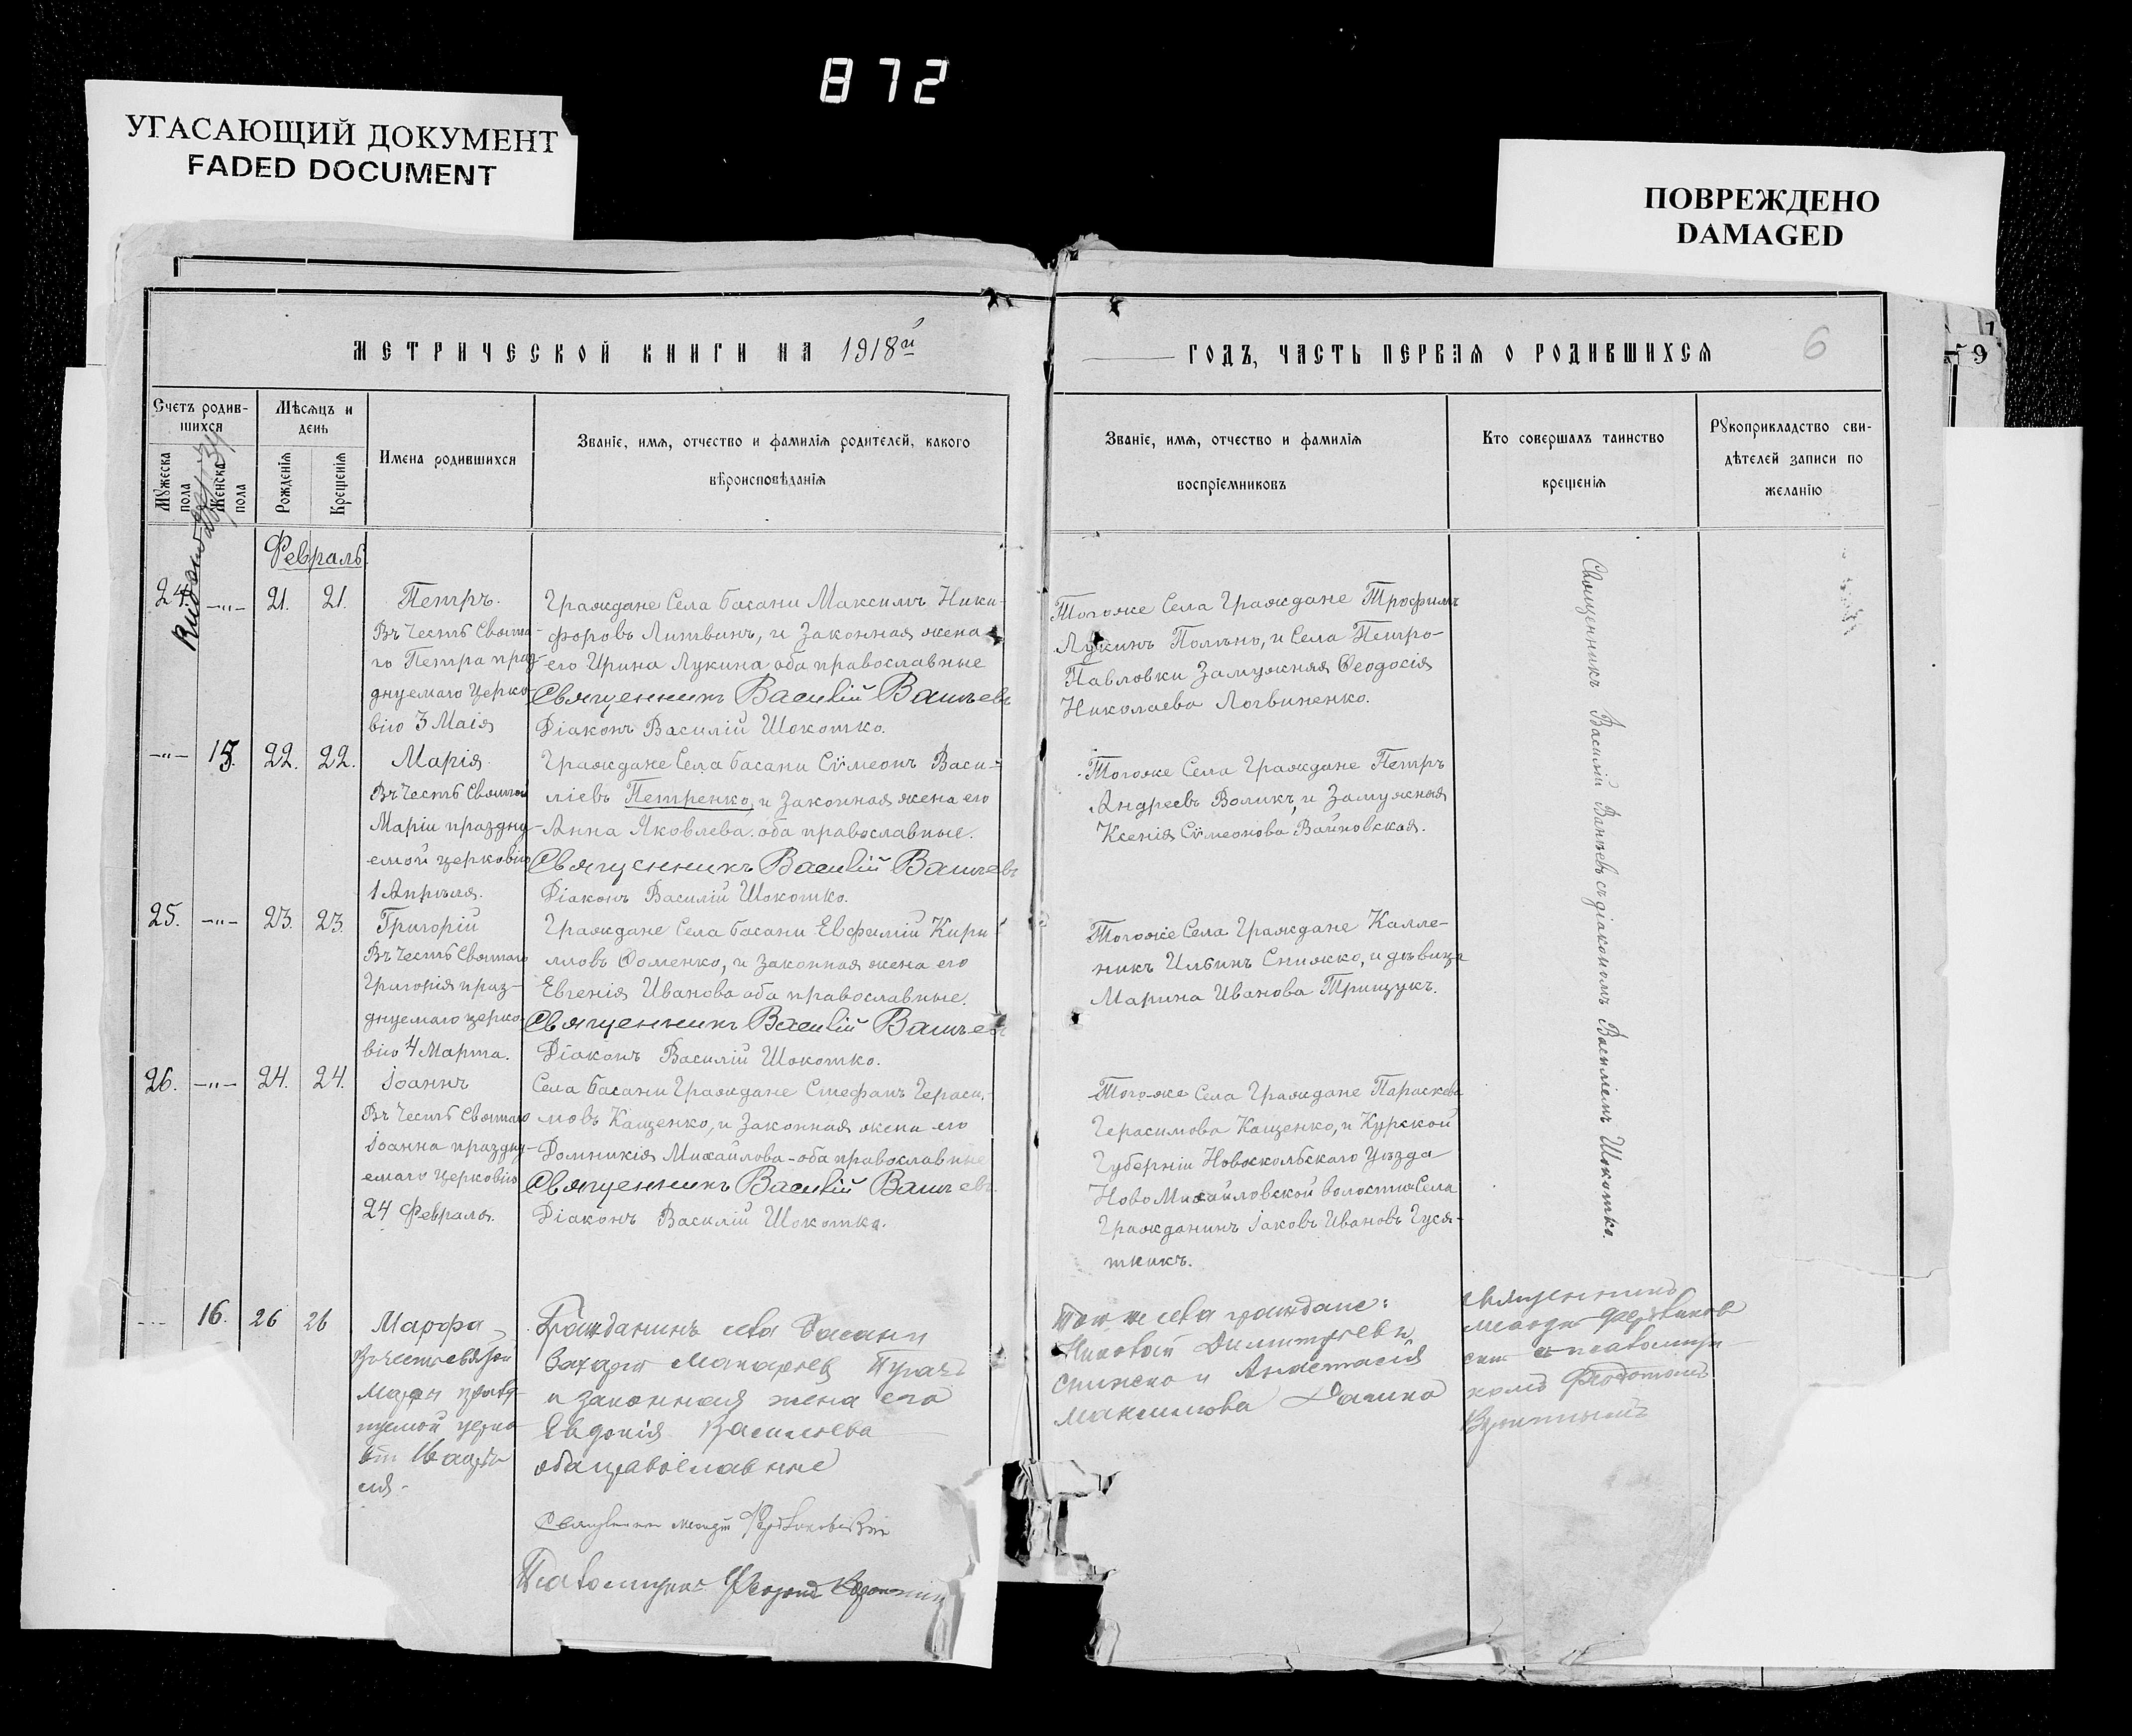 872
УГАСАЮЩИЙ ДОКУМЕНТ
FADED DOCUMENT
ПОВРЕЖДЕНО
DAMAGED
МЕТРИЧЕСКОЙ КНИГИ НА 1918й
ГОДЪ, ЧАСТЬ ПЕРВАЯ О РОДИВШИХСЯ
6
1
9
Счетъ родив-
шихся
Мужеска
пола
Женска
пола
Мѣсяцъ и
день
Рожденія
Крещенія
Имена родившихся
Званіе, имя, отчество и фамилія родителей, какого
вѣроисповѣданія
Званіе, имя, отчество и фамилія
воспріемниковъ
Кто совершалъ таинство
крещенія
Рукоприкладство сви-
дѣтелей записи по
желанію
Февраль.
24. -"- 21. 21.
Петръ.
Въ Честь Свята-
го Петра праз-
днуемаго Церко-
вію 3 Маія
Граждане Села Басани Максимъ Ники-
форовъ Литвинъ, и Законная жена
его Ирина Лукина оба православные
Священникъ Василій
Діаконъ Василій Шокотко.
Тогоже Села Граждане Трофимъ
Лукинъ и Села Петро-
Павловки Замужняя Ѳеодосія
Николаева Логвиненко.
-"- 15. 22. 22.
Марія.
Въ Честь Святой
Маріи праздну-
емой церковію
1 Апрѣля.
Граждане Села Басани Сѵмеонъ Васи-
ліевъ Петренко, и Законная жена его
Анна Яковлева. оба православные.
Священникъ Василій
Діаконъ Василій Шокотко.
Тогоже Села Граждане Петръ
Андреевъ Воликъ, и Замужняя
Ксенія Сѵмеонова Войновская.
25. -"- 23. 23.
Григорій
Въ Честь Святаго
Григорія праз-
днуемаго церко-
вію 4 Марта.
Граждане Села Басани Евфимій Кири-
лловъ Ѳоменко, и Законная жена его
Евгенія Иванова оба православные.
Священникъ Василій
Діаконъ Василій Шокотко.
Тогоже Села Граждане Калле-
никъ Ильинъ Снижко, и дѣвица
Марина Иванова Трищукъ.
26. -"- 24. 24.
Іоаннъ
Въ Честь Святаго
Іоанна праздну-
емаго Церковію
24 Февраля.
Села Басани Граждане Стефанъ Гераси-
мовъ Кащенко, и Законная жена его
Домникія Михайлова - оба православные
Священникъ Василій
Діаконъ Василій Шокотко.
Тогоже Села Граждане Параскева
Герасимова Кащенко, и Курской
Губерніи Новоскольскаго Уѣзда
Ново Михайловской волости Села
Гражданинъ Іаковъ Ивановъ Гуся-
тникъ.
Священникъ Василій съ діакономъ Василіемъ Шокотко.
16. 26 26
Марфа
Гражданинъ села Басани
Макарiев
и законная жена его
Евдокія Васильева
оба православные
села граждане:
Димитріев и
Анастасія
Максимова
Священникъ